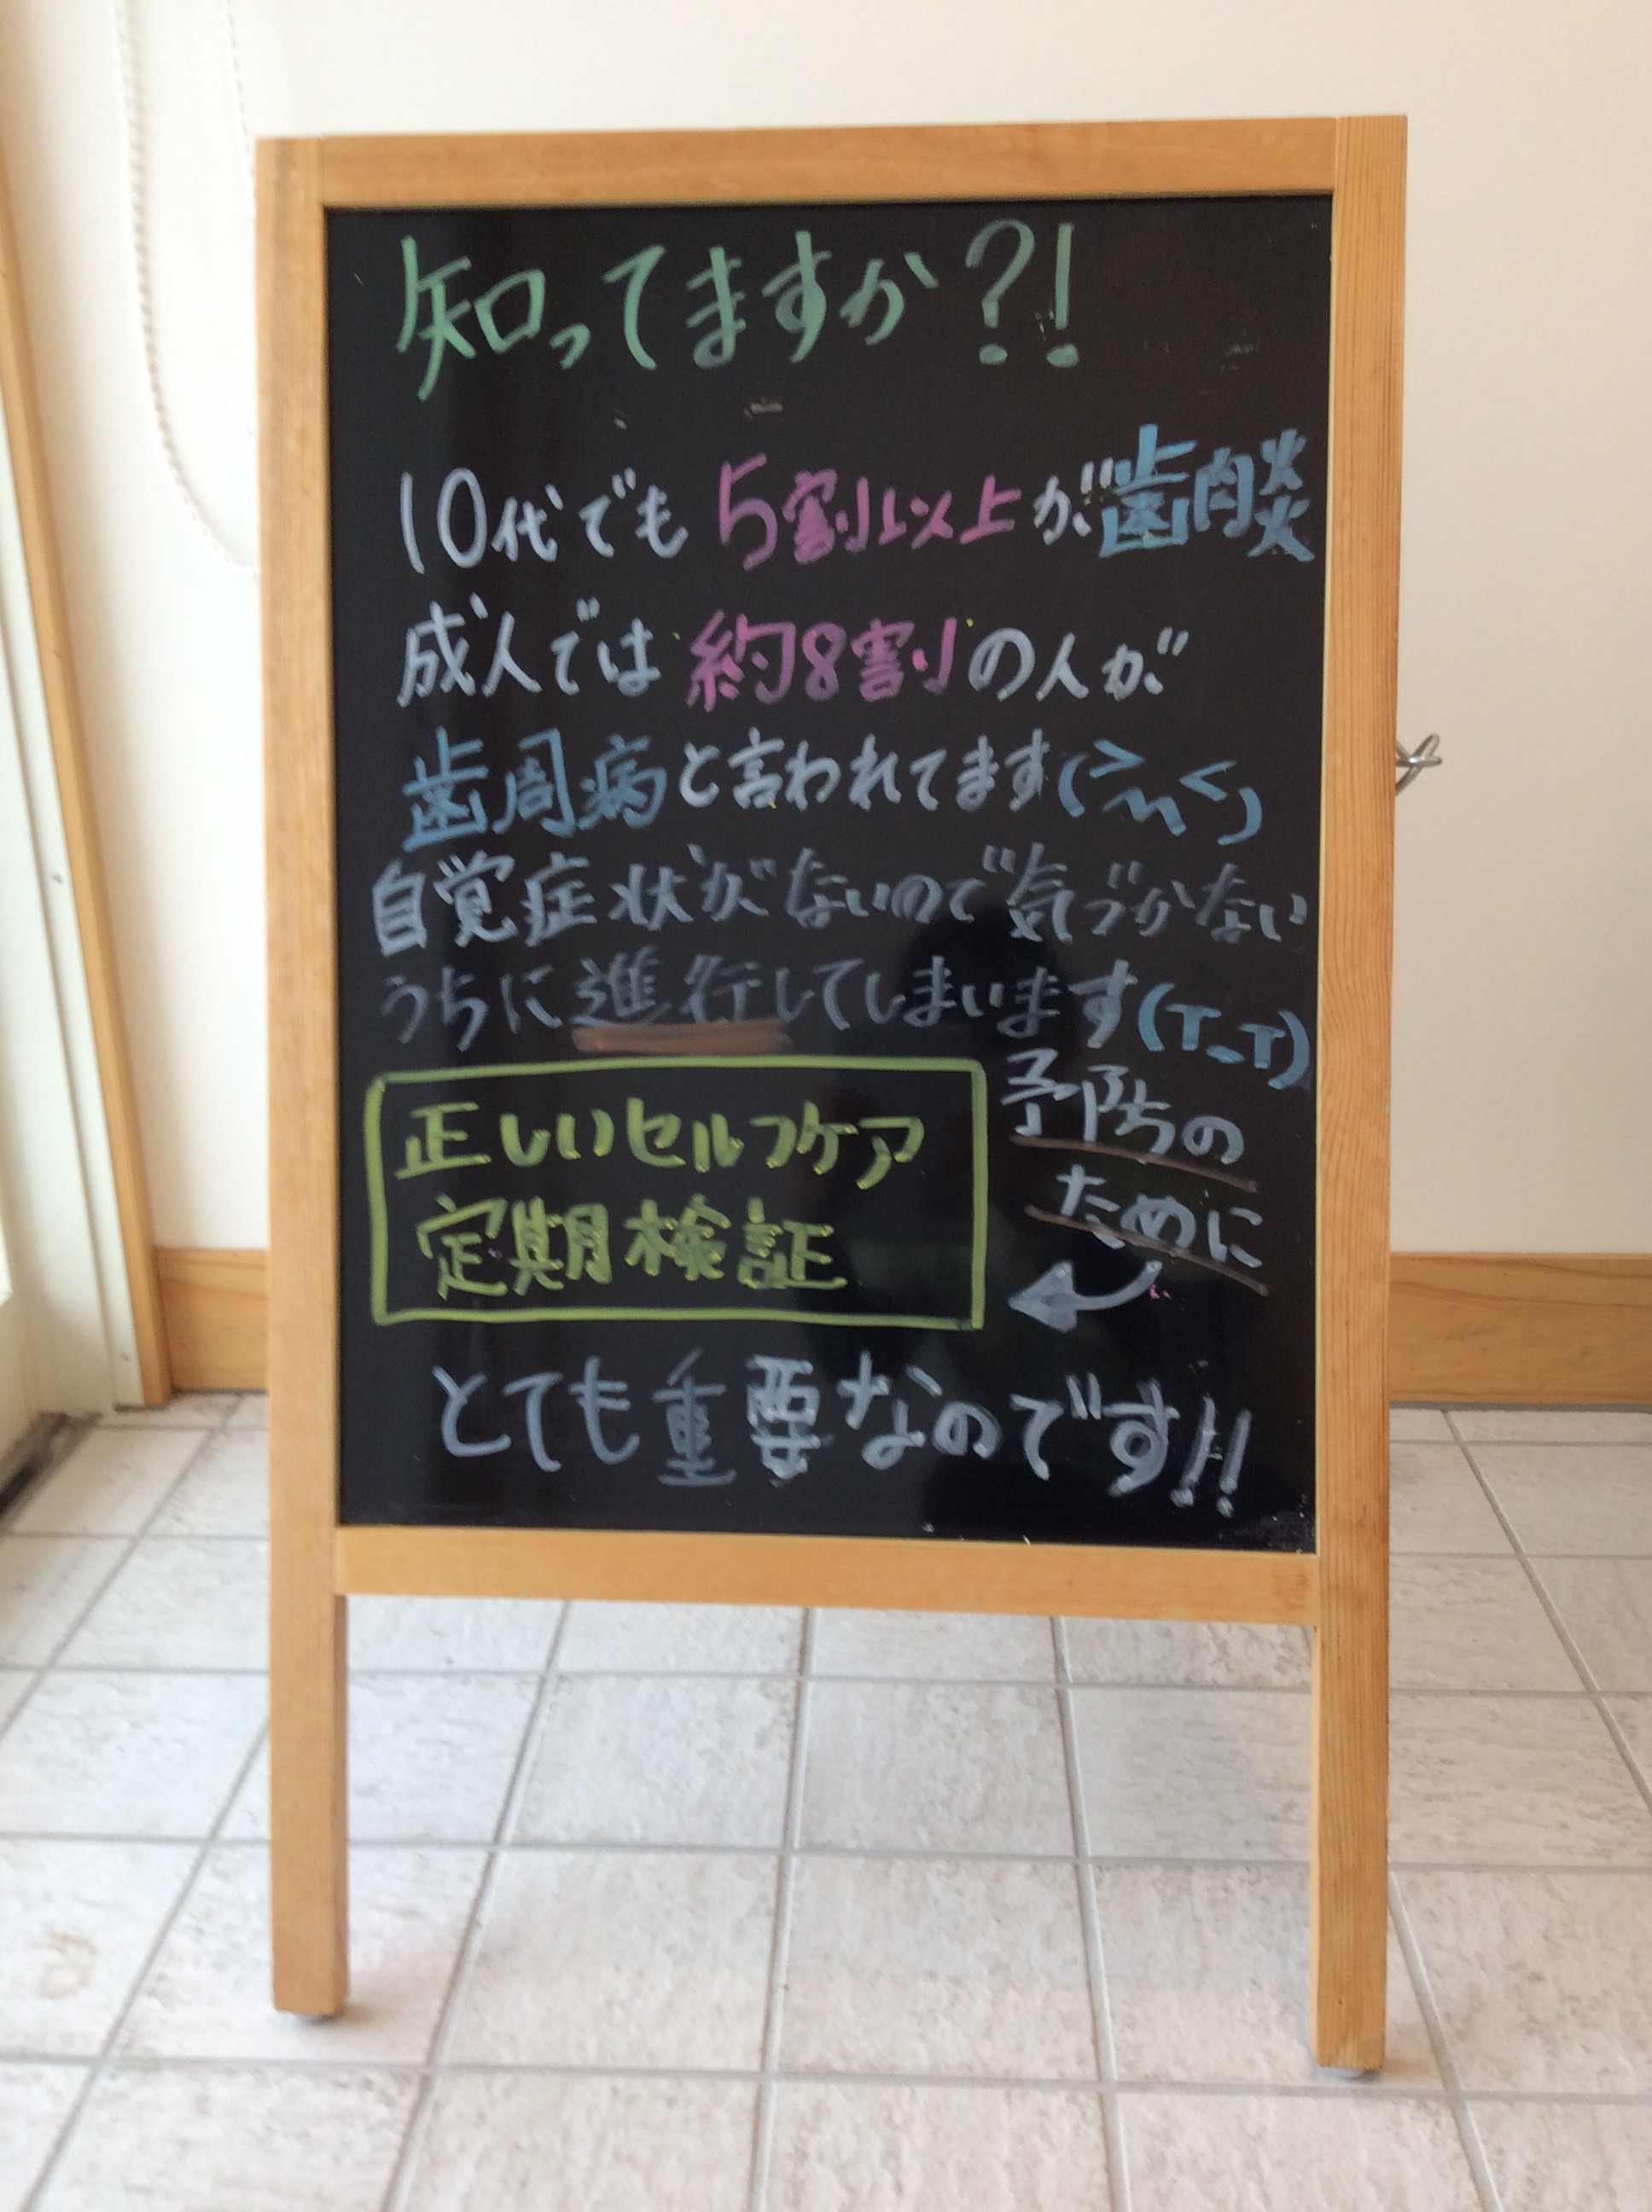 知ってますか?!
10代でも5割以上が歯肉炎
成人では約8割の人が
歯周病と言われてます(>~<)
自覚症状がないので気づかない
うちに進行してしまいます(T_T)
予防の
ために
正しいセルフケア
定期検証
とても重要なのです!!